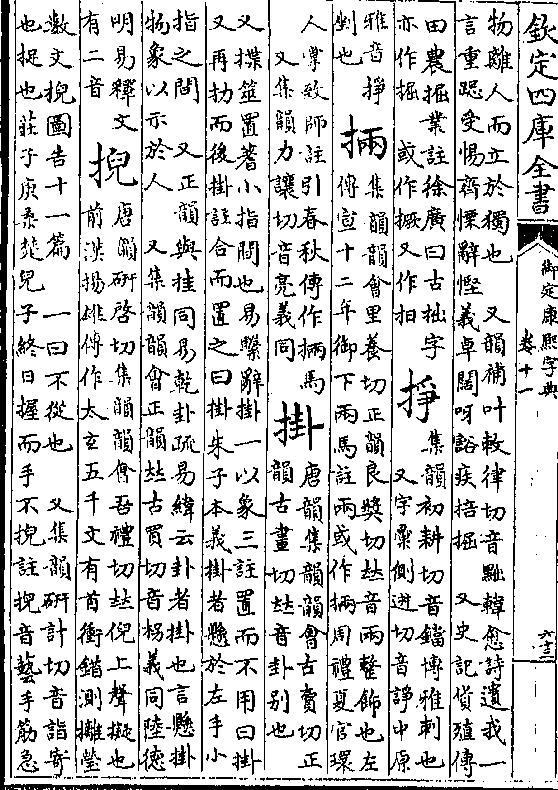 欽定四庫全書
御定康熙字典
卷十一
六十三
物離人而立於獨也 又韻補叶敕律切音黜韓愈詩還我一
言重跽受惕齊慄辭慳義卓闊呀豁疚掊掘 又史記貨殖傳
田農掘業註徐廣曰古拙字
亦作掘 或作撅又作抇
掙
集韻初耕切音鐺博雅刺也
又字彙側迸切音諍中原
雅音掙
剉也
掚
集韻韻會里養切正韻良奬切𠀤音兩整飾也左
傳宣十二年御下兩馬註兩或作掚周禮夏官環
人掌致師註引春秋傳作掚馬
又集韻力讓切音亮義同
掛
唐韻集韻韻會古賣切正
韻古畫切𠀤音卦別也
又揲筮置蓍小指間也易繫辭掛一以象三註置而不用曰掛
又再扐而後掛註合而置之曰掛朱子本義掛者懸於左手小
指之間 又正韻與挂同易乾卦疏易緯云卦者掛也言懸掛
物象以示於人 又集韻韻會正韻𠀤古買切音柺義同陸德
明易釋文
有二音
掜
唐韻研啓切集韻韻會吾禮切𠀤倪上聲擬也
前漢揚雄傳作太玄五千文有首衝錯測攡瑩
數文掜圖告十一篇 一曰不從也 又集韻研計切音詣寄
也捉也莊子庚桑楚兒子終日握而手不掜註掜音藝手筋急